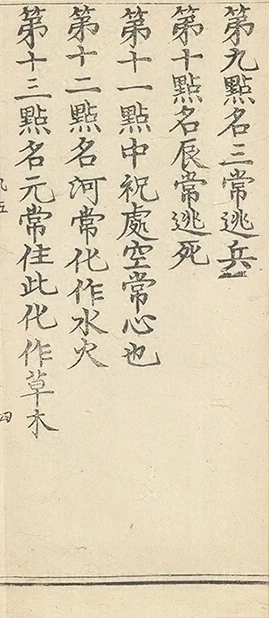 第九點名三常逃兵
第十點名辰常逃死
第十一點中祝處空常心也
第十二點名河常化作水火
第十三點名元常住此化作草木